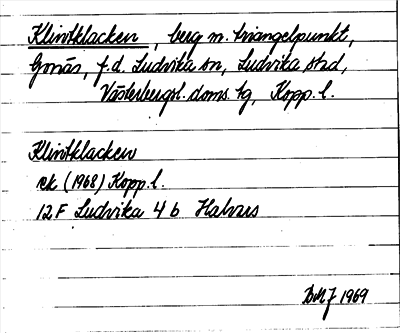 Klintklacken, berg m. triangelpunkt,
Gonäs, f.d. Ludvika sn, Ludvika stad,
Västerbergsl. doms. tg, Kopp. l.
Klintklacken
ek (1968) Kopp. l.
12 F Ludvika 4 b Halvars
1969